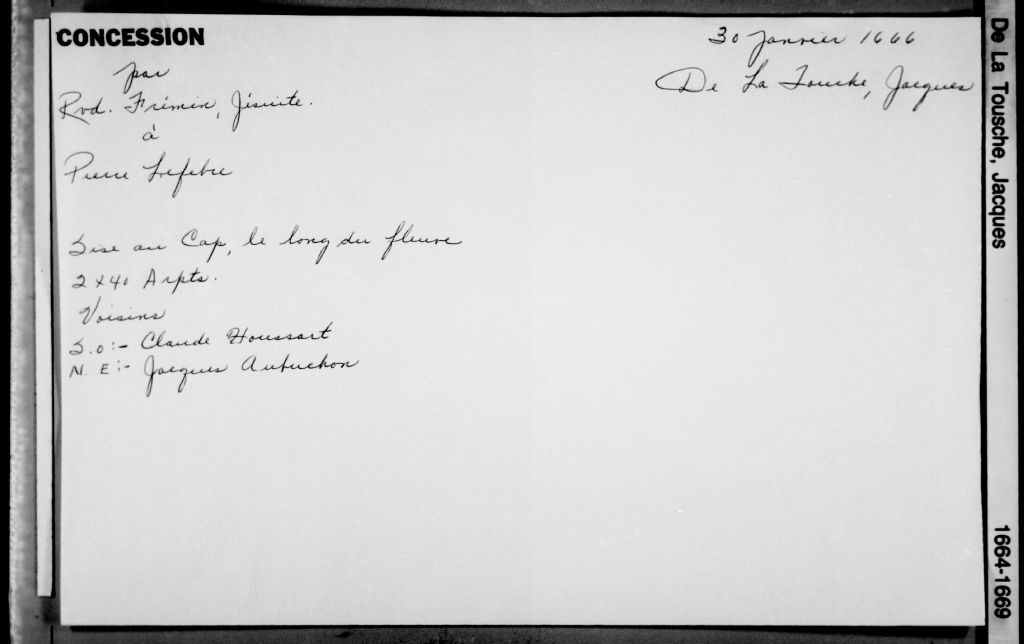 CONCESSION
30 Janvier 1666
par
De La Tousche, Jacques
Rvd. Frémin, Jésuite.
à
Pierre Lefebre
Sise au Cap, le long du fleuve
2 x 40 Arpts.
Voisins
S.O:- Claude Houssart
N.E:- Jacques Aubuchon
De La Tousche, Jacques
1664-1669